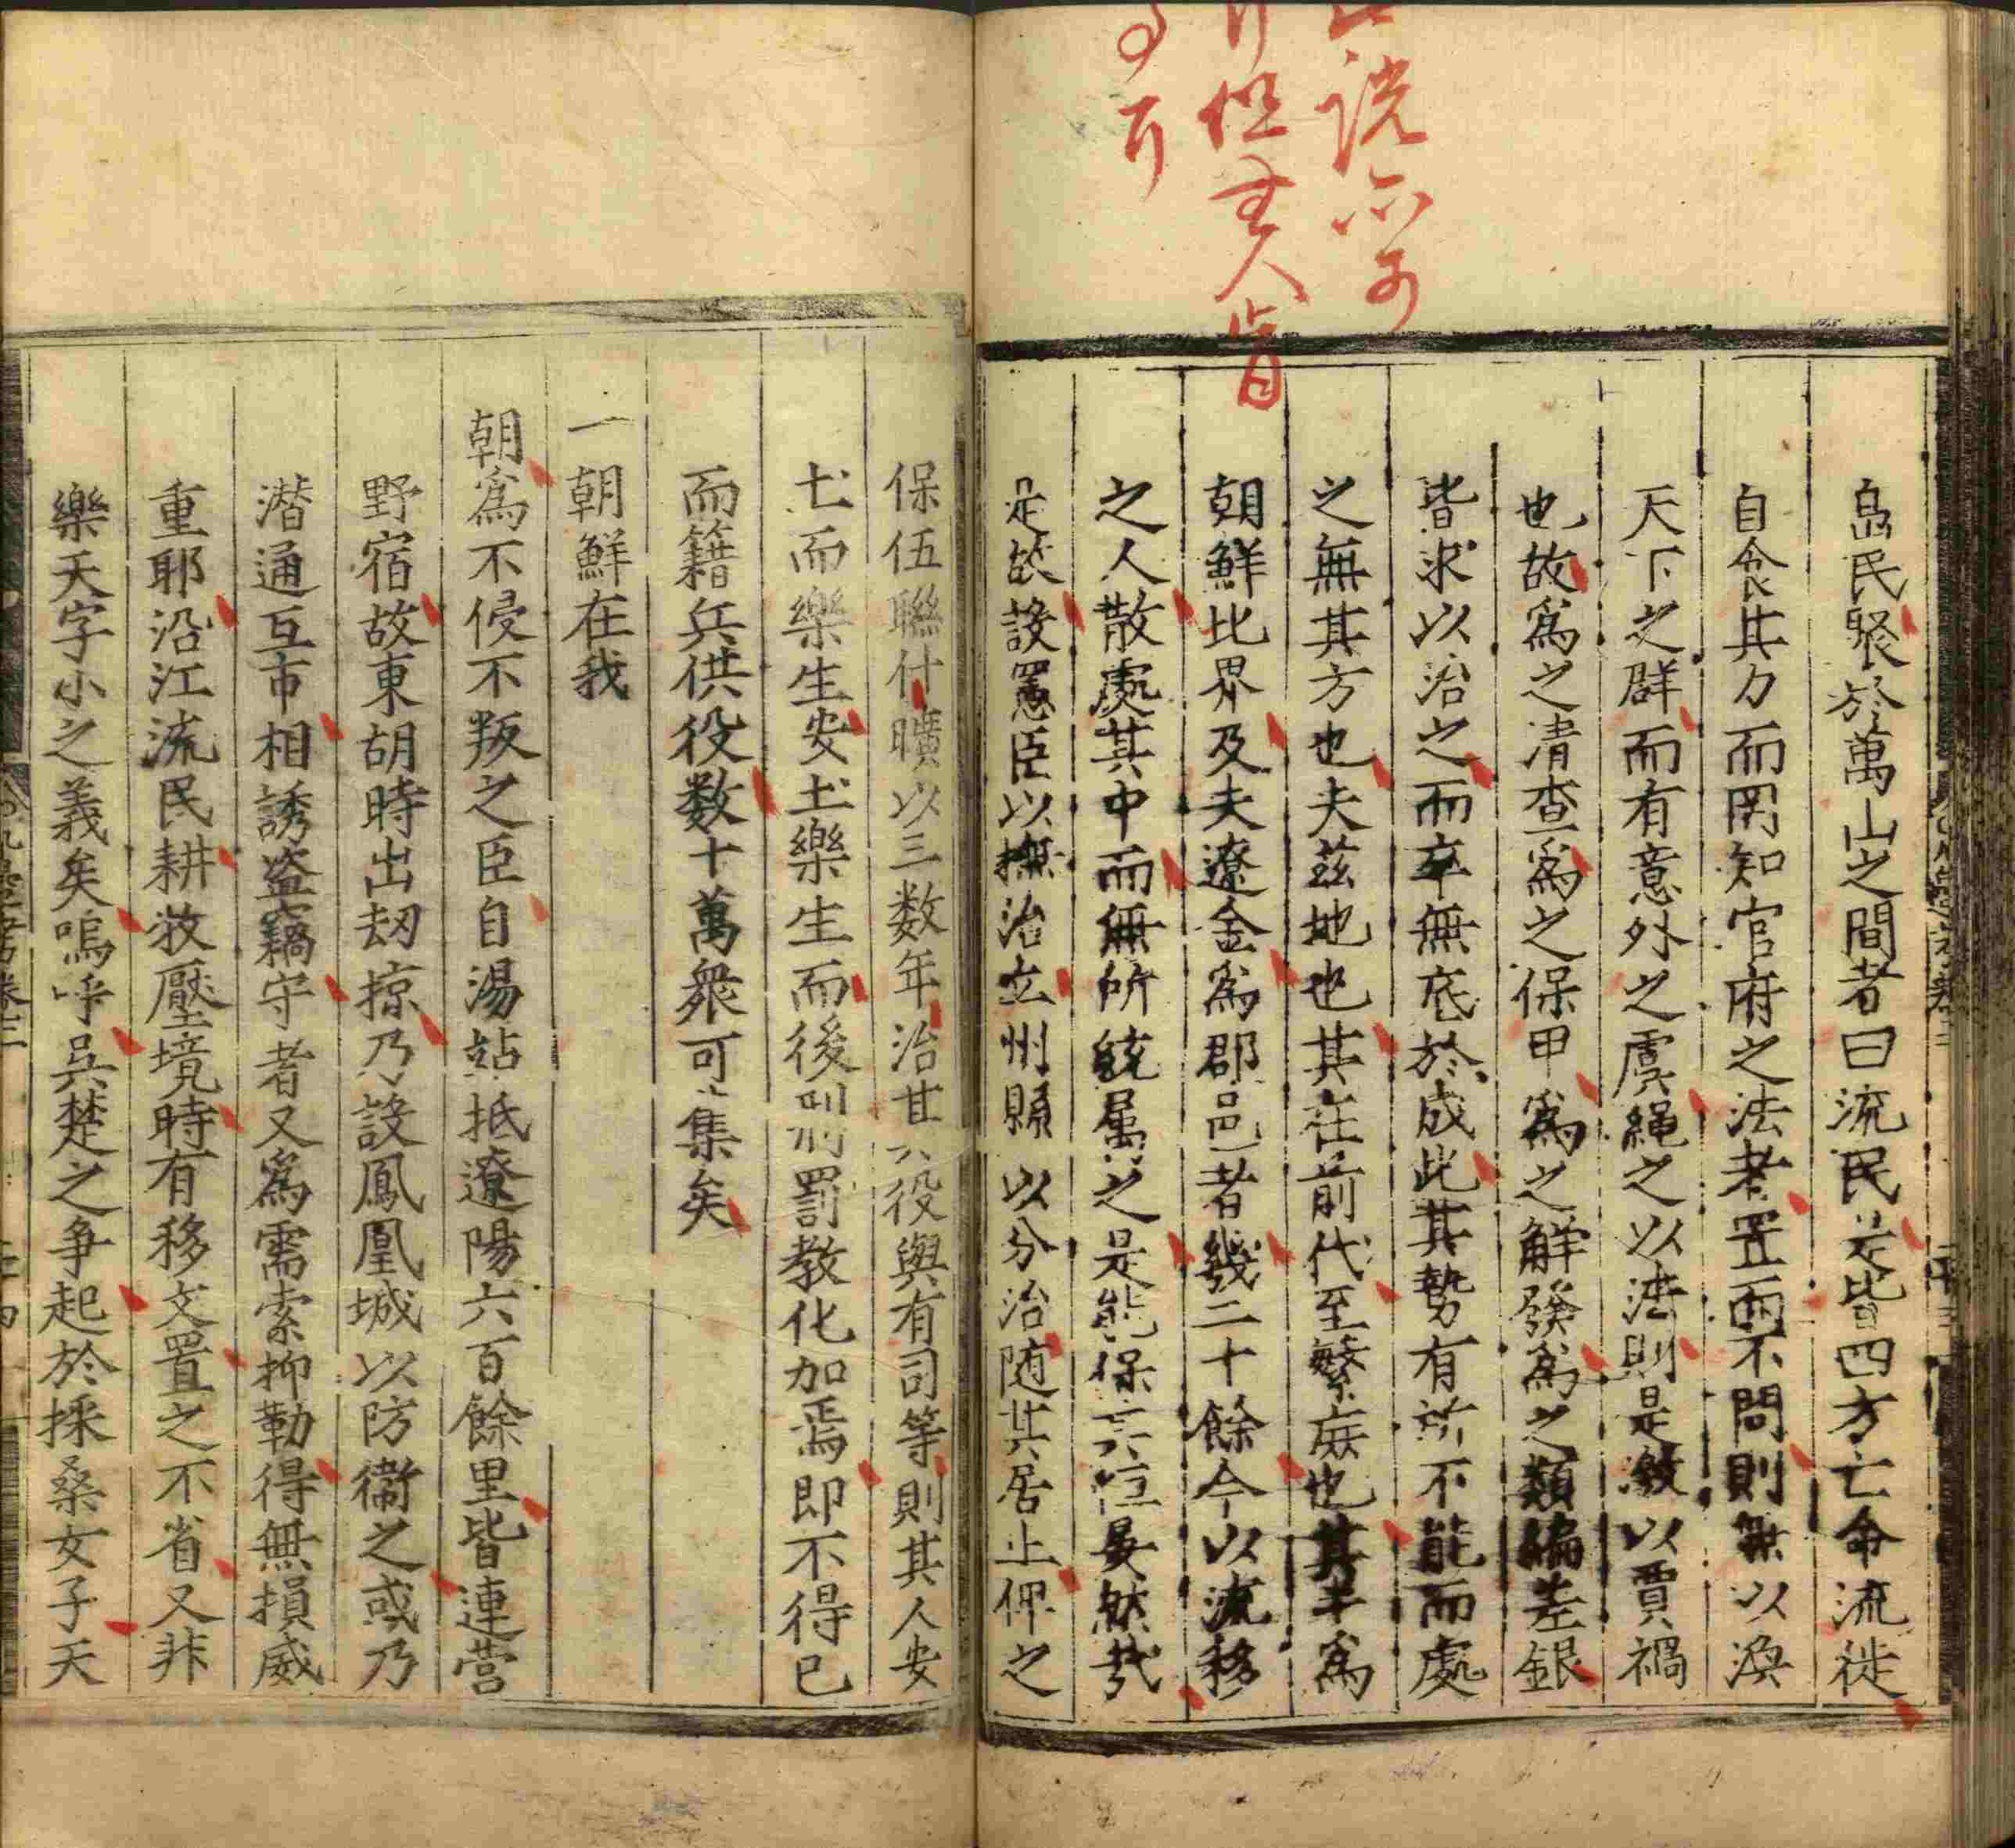 說亦可
但無人肯
島民聚於萬山之間者曰流民是皆四方亡命流徙
自食其力而罔知官府之法者置而不問則無以渙
天下之群而有意外之虞繩之以法則是激以賈禍
也故為之清查為之保甲為之解發為之類編差銀
皆求以治之而卒無底於成此其勢有所不能而處
之無其方也夫茲地也其在前代至繁庶也其半為
朝鮮比界及夫遼金為郡邑者幾二十餘今以流移
之人散處其中而無所統属之是能保其恒晏然哉
是故設憲臣以撫治立州縣以分治随其居止俾之
保伍聯什曠以三数年治甘役與有司等則其人安
七而樂生安土樂生而後刑罰教化加焉即不得已
而籍兵供役数十萬衆可集矣
一朝鮮在我
朝為不侵不叛之臣自湯站抵遼陽六百餘里皆連営
野宿故東胡時出刼掠乃設鳳凰城以防衞之或乃
潜通互市相誘盗竊守者又為需索抑勒得無損威
重耶沿江流民耕牧壓境時有移文置之不省又非
樂天字小之義矣嗚呼吳楚之争起於採桑女子天
卷三